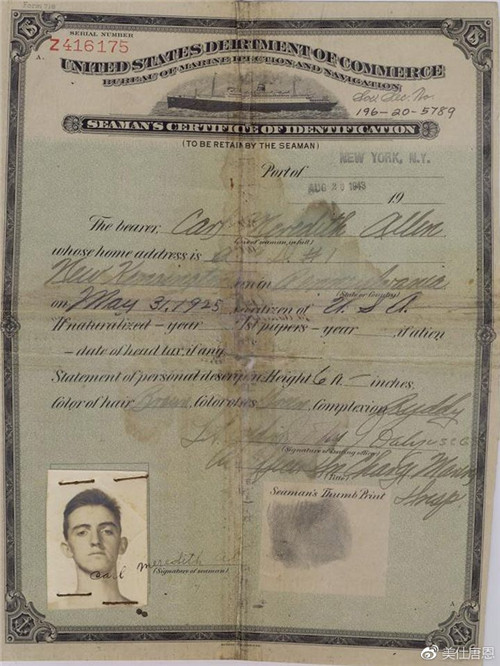 Form 718
SERIAL NUMBER
Z416175
A.
UNITED STATES DEIRTMENT OF COMMERCE
BUREAU OF MARINE IECTION AND NAVIGATION
Soc. Sec. No.
196-20-5789
SEAMAN'S CERTIFICTE OF IDENTIFICATION
(TO BE RETAIN BY THE SEAMAN)
Port of NEW YORK, N.Y.
AUG 1943 19
The bearer, Carl Meredith Allen
(of seaman, in full)
whose home address is
New Kensington on in Pennsylvania
(State or Country)
on May 31, 1925 citizen of U.S.A.
If naturalized – year 1st papers – year , if alien
– date of head tax, if any
Statement of personal descripn: Height 6 ft. – inches.
Color of hair Brown Color of s Brown Complexion Ruddy
(Signature of issuing officer)
In Charge
(Title)
Hosp.
Seaman's Thumb Print
Carl Meredith
(Signature of seaman)
@美仕唐恩